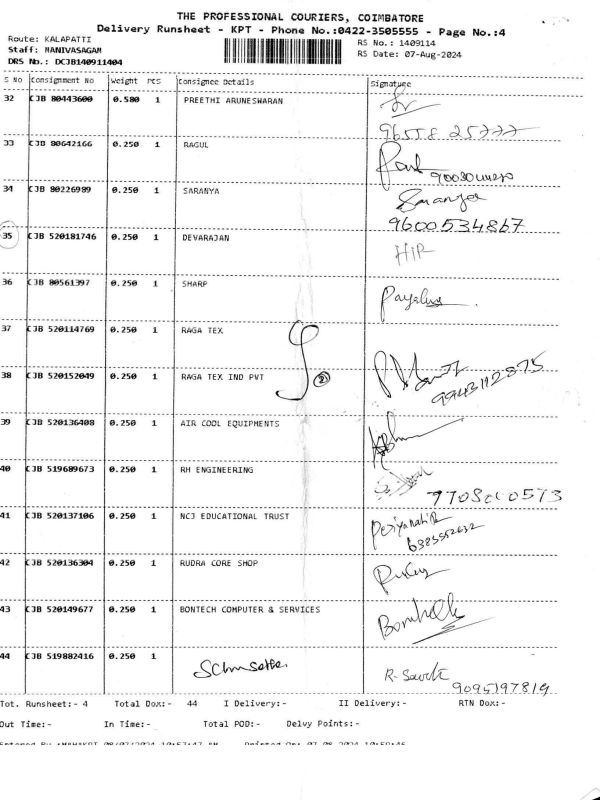 THE PROFESSIONAL COURIERS, COIMBATORE
Delivery Runsheet - KPT - Phone No.:0422-3505555 - Page No.:4
Route: KALAPATTI
Staff: MANIVASAGAM
DRS No.: DCJB140911404
RS No.: 1409114
RS Date: 07-Aug-2024
S No Consignment No Weight PCS Consignee Details Signature
32 CJB 80443600 0.580 1 PREETHI ARUNESWARAN
96558 25777
33 CJB 80642166 0.250 1 RAGUL
34 CJB 80226989 0.250 1 SARANYA Saranya
9600534867
35 CJB 520181746 0.250 1 DEVARAJAN
36 CJB 80561397 0.250 1 SHARP
37 CJB 520114769 0.250 1 RAGA TEX
2
38 CJB 520152049 0.250 1 RAGA TEX IND PVT
9943112875
39 CJB 520136408 0.250 1 AIR COOL EQUIPMENTS
40 CJB 519689673 0.250 1 RH ENGINEERING
41 CJB 520137106 0.250 1 NCJ EDUCATIONAL TRUST
6385552632
42 CJB 520136304 0.250 1 RUDRA CORE SHOP
43 CJB 520149677 0.250 1 BONTECH COMPUTER & SERVICES
44 CJB 519882416 0.250 1
9095197819
Tot. Runsheet:- 4 Total Dox:- 44 I Delivery:- II Delivery:- RTN Dox:-
Out Time:- In Time:- Total POD:- Delvy Points:-